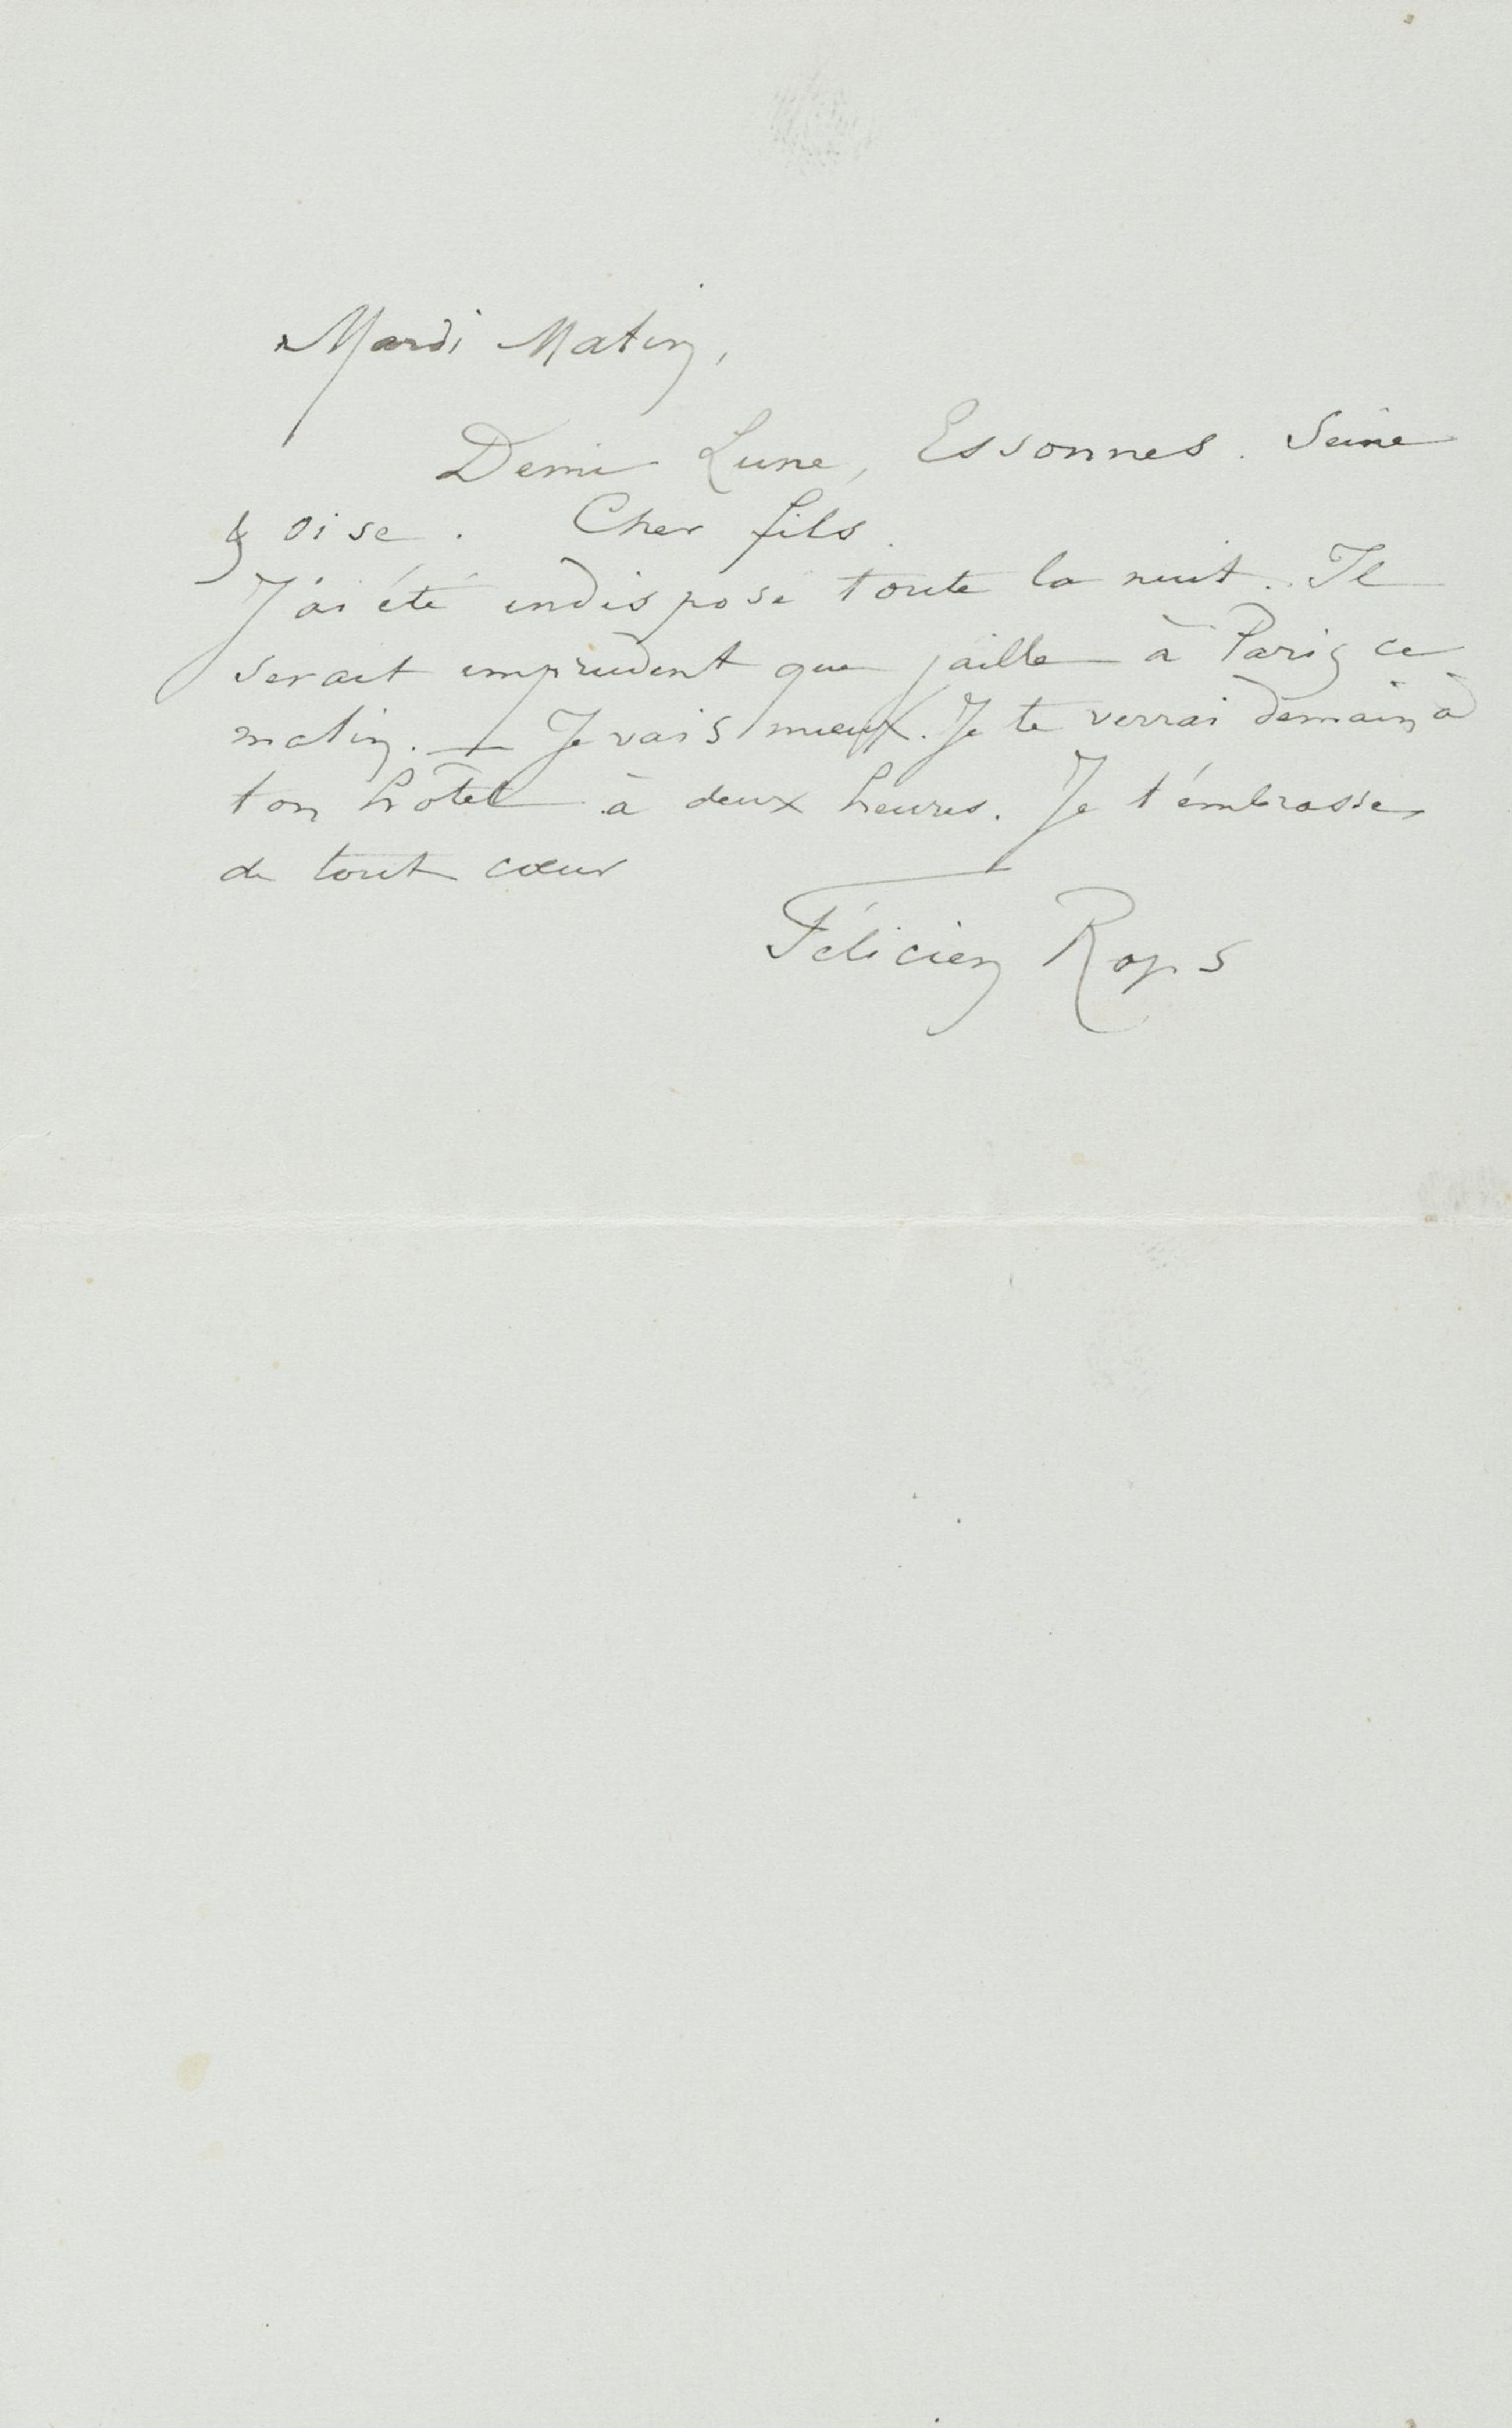 Mardi Matin,
Demi Lune, Essonnes. Seine
& Oise. Cher fils.
J'ai été indisposé toute la nuit. Il
serait imprudent que j'aille à Paris ce
matin. — Je vais mieux. Je te verrai demain à
ton hôtel à deux heures. Je t'embrasse
de tout cœur
Félicien Rops